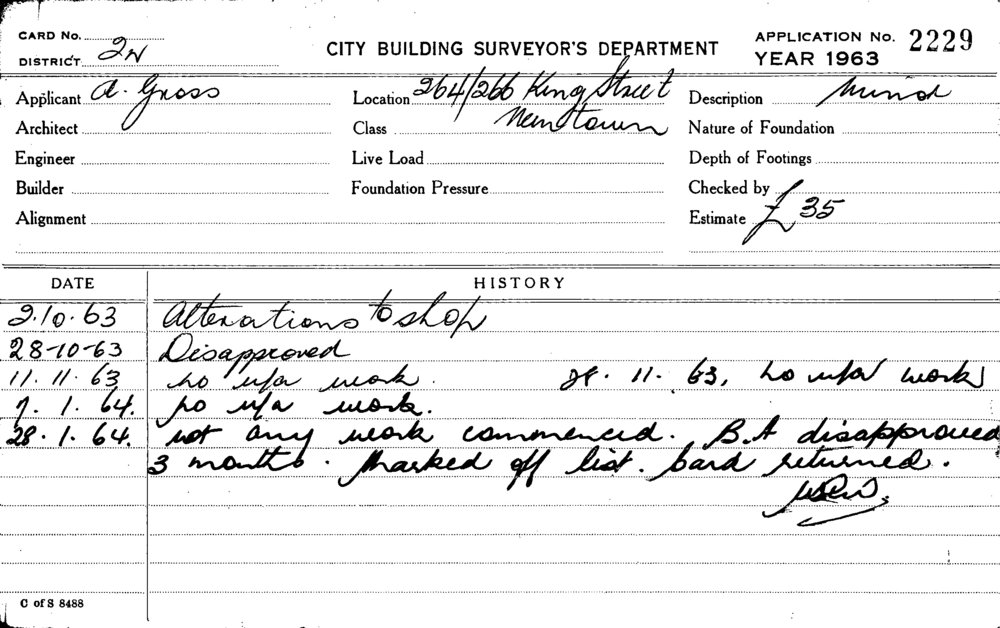 CARD No.
DISTRICT 2N
CITY BUILDING SURVEYOR'S DEPARTMENT
APPLICATION No. 2229
YEAR 1963
Applicant A. Gross
Location 264/266 King Street
Newtown
Description Minor
Architect
Class
Nature of Foundation
Engineer
Live Load
Depth of Footings
Builder
Foundation Pressure
Checked by
Alignment
Estimate £35
DATE HISTORY
2.10.63 Alterations to shop
28-10-63 Disapproved
11.11.63 no u/a work. 28.11.63, no u/a work
7.1.64. no u/a work.
28.1.64. not any work commenced. B.A disapproved
3 months. Marked off list. Card returned.
C of S 8488